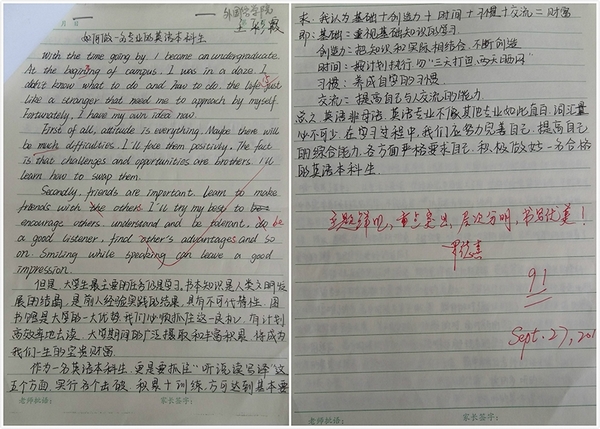 外国语学院
如何做一名专业的英语本科生
With the time going by, I become an undergraduate.
At the begining of campus, I was in a daze. I
didn't know what to do and how to do. the life just
like a stranger that need me to approach by myself.
Fortunately, I have my own idea now.
First of all, attitude is everything. Maybe there will
be much difficulties. I'll face them positivly. The fact
is that challenges and opportunities are brothers. I'll
learn how to swap them.
Secondly, friends are important. Learn to make
friends with the others. I'll try my best to
encourage others. understand and be tolerant, do be
a good listener, find other's advantages and so
on. Smiling while speaking can leave a good
impression.
但是,大学生最主要的任务仍是学习,书本知识是人类文明发
展的结晶,是前人经验实践的结果,具有不可代替性,图
书馆是大学的一大优势,我们必须抓住这一良机,有计划
高效率地去读,大学期间的广泛摄取和丰富积累,将成为
我们一生的宝贵财富.
作为一名英语本科生,更是要抓住"听说读写译"这
五个方面,实行各个击破,积累+训练,方可达到基本要
老师批语: 家长签字:
求.我认为基础+创造力+时间+习惯+交流=财富
即:基础:重视基础知识的学习.
创造力:把知识和实际相结合,不断创造
时间:按计划执行,切"三天打鱼,两天晒网"
习惯:养成自学的习惯
交流:提高自己与人交流的能力.
总之,英语非母语,英语专业不像其他专业如此直白,词汇量
必不可少,在学习过程中,我们应努力完善自己,提高自己
的综合能力,各方面严格要求自己,积极做好一名合格
的英语本科生.
主题鲜明,重点突出,层次分明,书写优美!
91
Sept. 27, 201
老师批语: 家长签字: